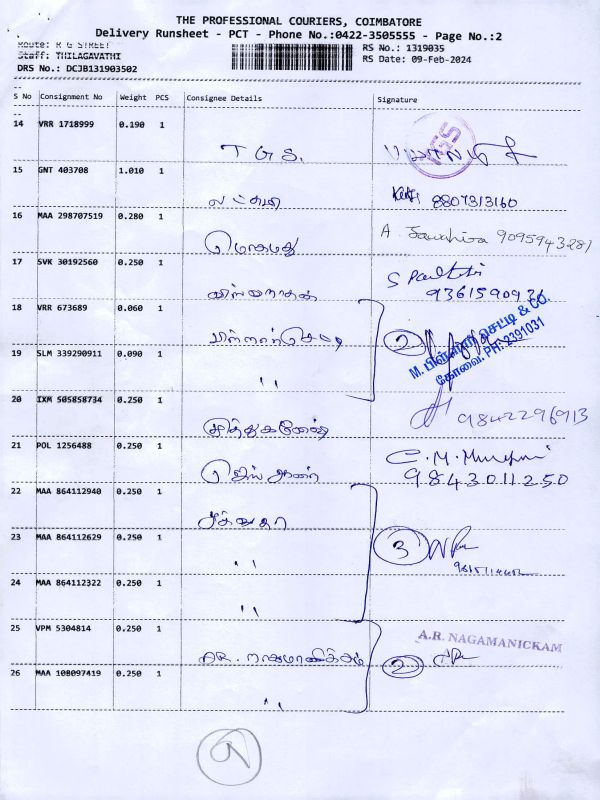 THE PROFESSIONAL COURIERS, COIMBATORE
Delivery Runsheet - PCT - Phone No.:0422-3505555 - Page No.:2
Route: R G STREET
RS No.: 1319035
Staff: THILAGAVATHI
RS Date: 09-Feb-2024
DRS No.: DCJB131903502
S No Consignment No Weight PCS Consignee Details Signature
14 VRR 1718999 0.190 1
T G S. TGS
15 GNT 403708 1.010 1
8807313160
16 MAA 298707519 0.280 1
A. 9095943281
17 SVK 30192560 0.250 1
விஸ்வநாதன்
18 VRR 673689 0.060 1
2
M. பிள்ளையார் செட்டி & CO.
கோவை. PH: 2391031
19 SLM 339290911 0.090 1
"
20 IXM 505858734 0.250 1
முத்துகணேஷ் 9842296913
21 POL 1256488 0.250 1
9843011250
22 MAA 864112940 0.250 1
23 MAA 864112629 0.250 1
" 3
24 MAA 864112322 0.250 1
"
25 VPM 5304814 0.250 1
A.R. NAGAMANICKAM
AR. நாகமாணிக்கம் 2
26 MAA 108097419 0.250 1
"